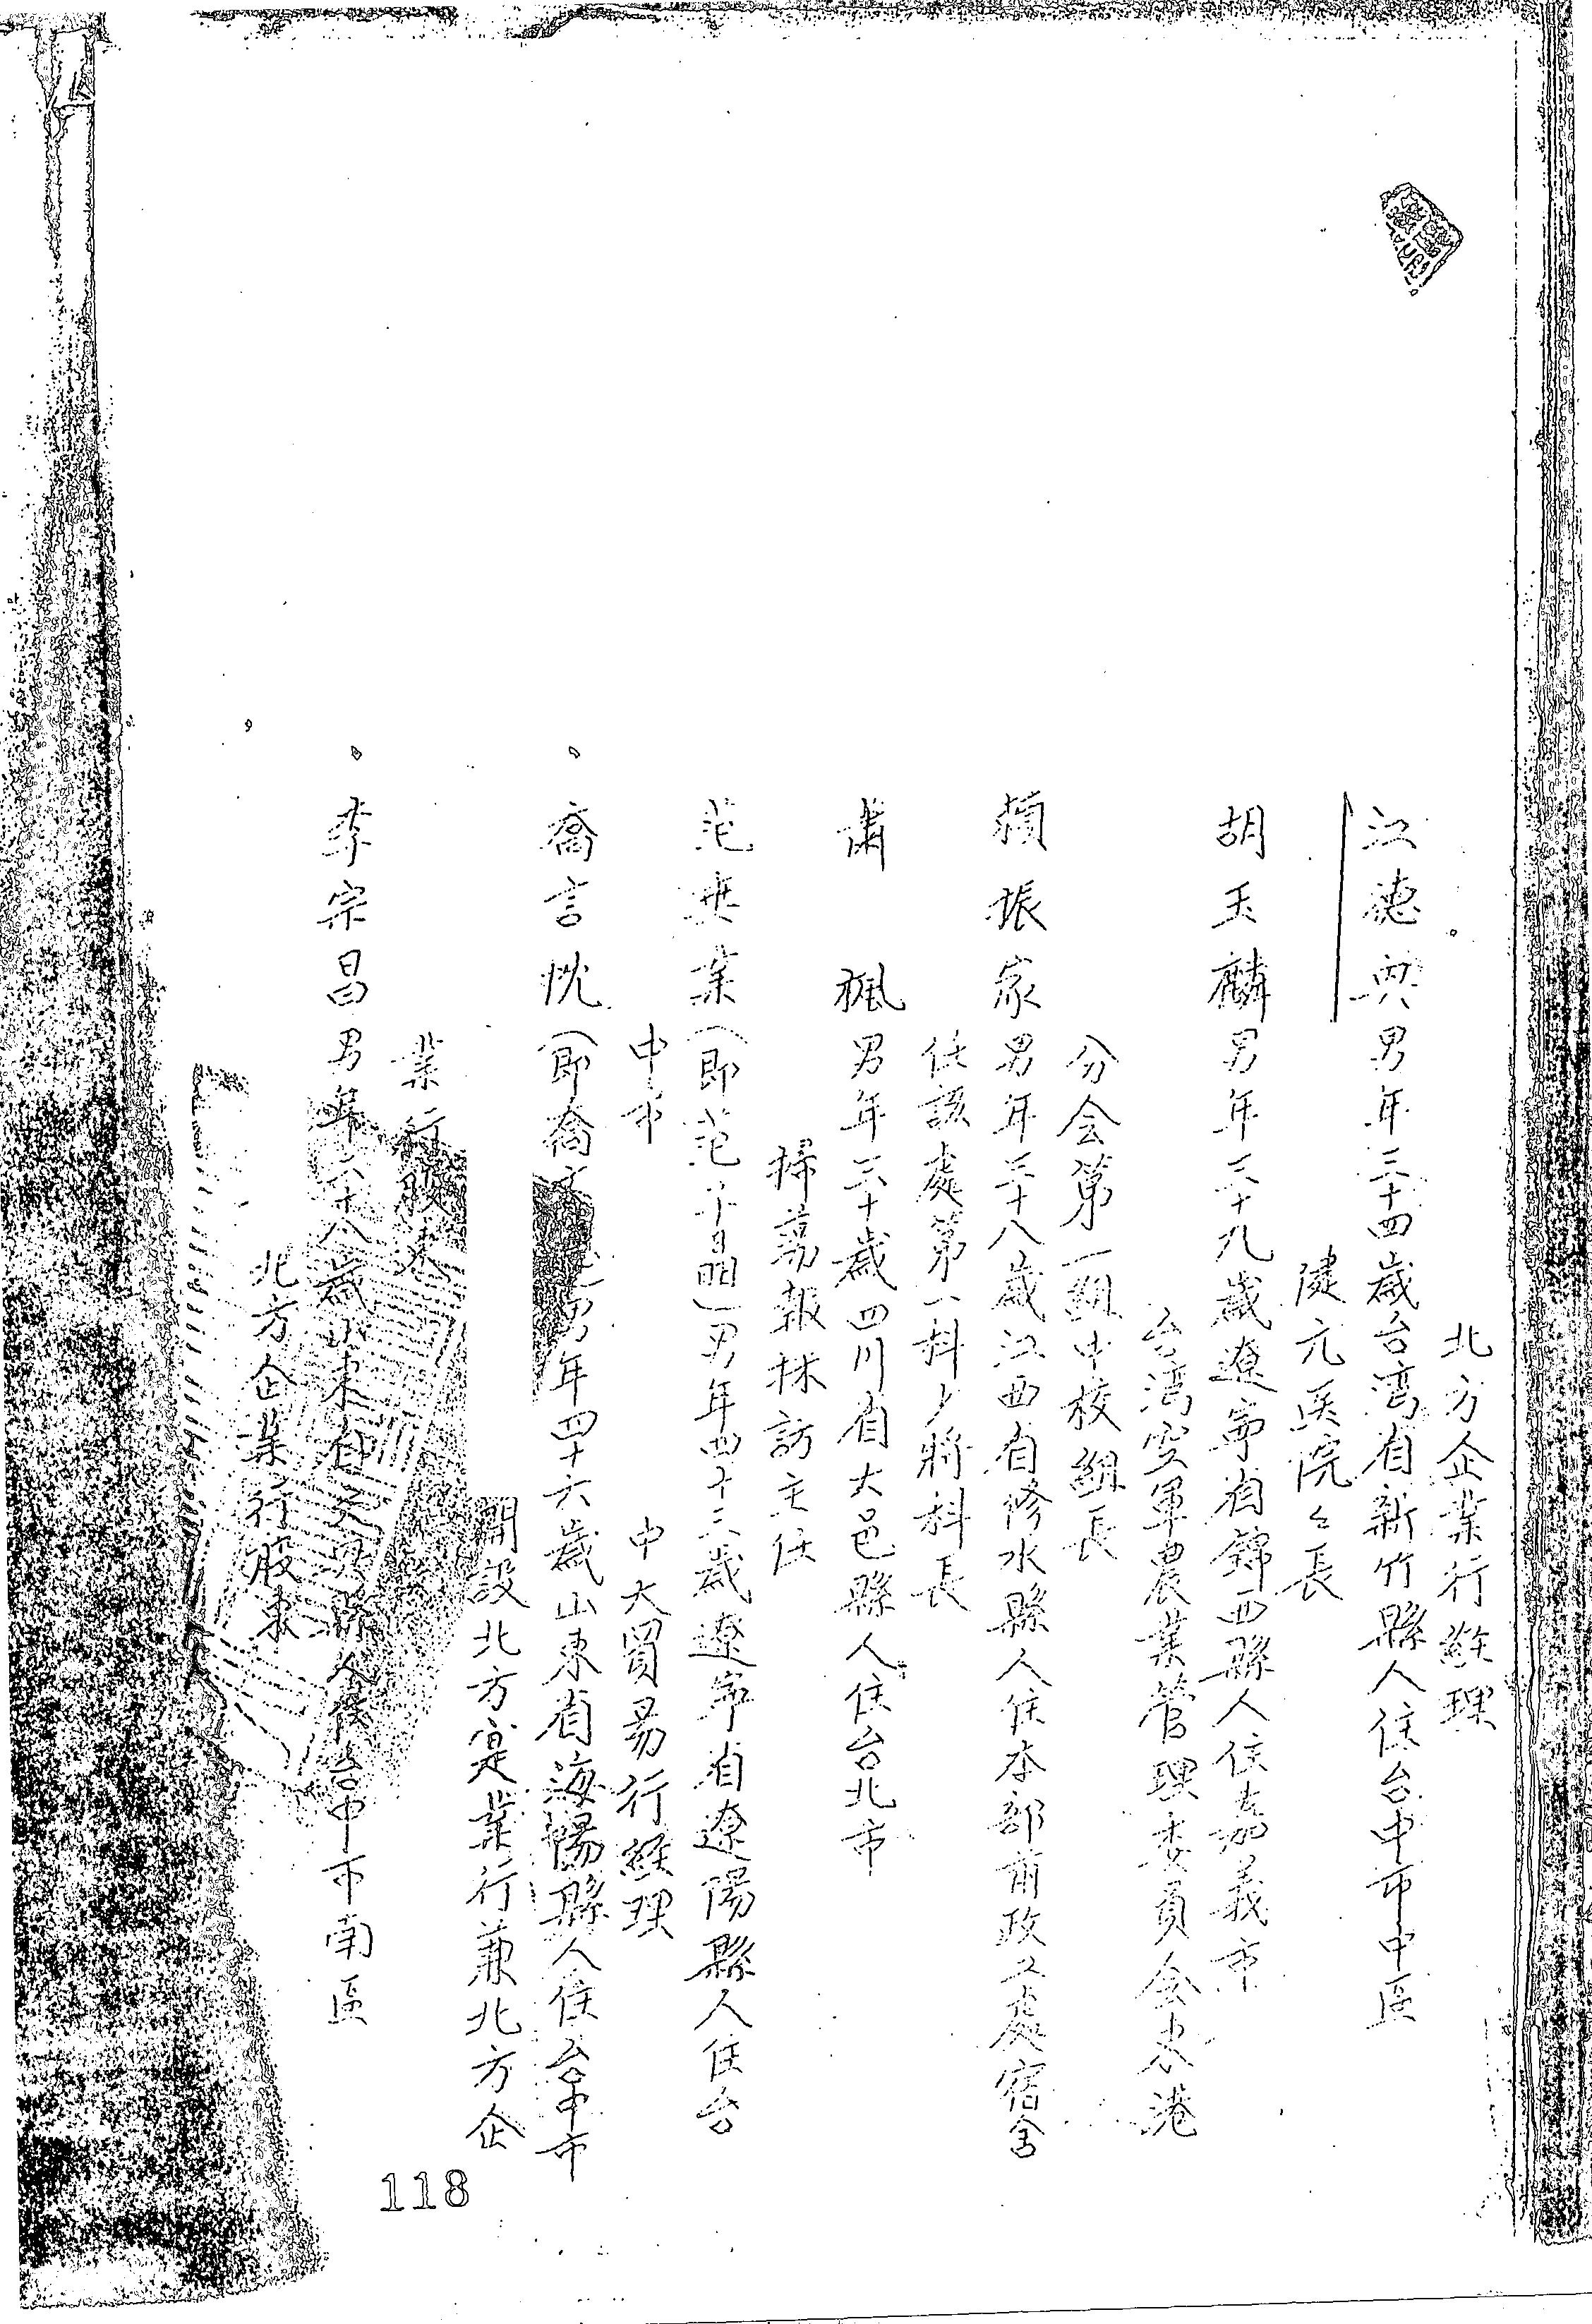 北方企業行經理
江德興男年三十四歲台湾省新竹縣人住台中市中區
健元医院々長
胡玉麟男年三十九歲遼寧省錦西縣人住嘉義市
台湾空軍農業管理委員会水港
分会第一組中校組長
賴振家男年三十八歲江西省修水縣人住本部前政工處宿舍
任該處第一科少將科長
蕭楓男年三十歲四川省大邑縣人住台北市
掃蕩報採訪主任
范業(即范)男年四十三歲遼寧省遼陽縣人住台
中市
中大貿易行經理
喬言忱(即喬男年四十六歲山東省海陽縣人住台中市
開設北方寔業行兼北方企
業行股東
李宗昌男年六十八歲山東省縣人住台中市南區
北方企業行股東
118